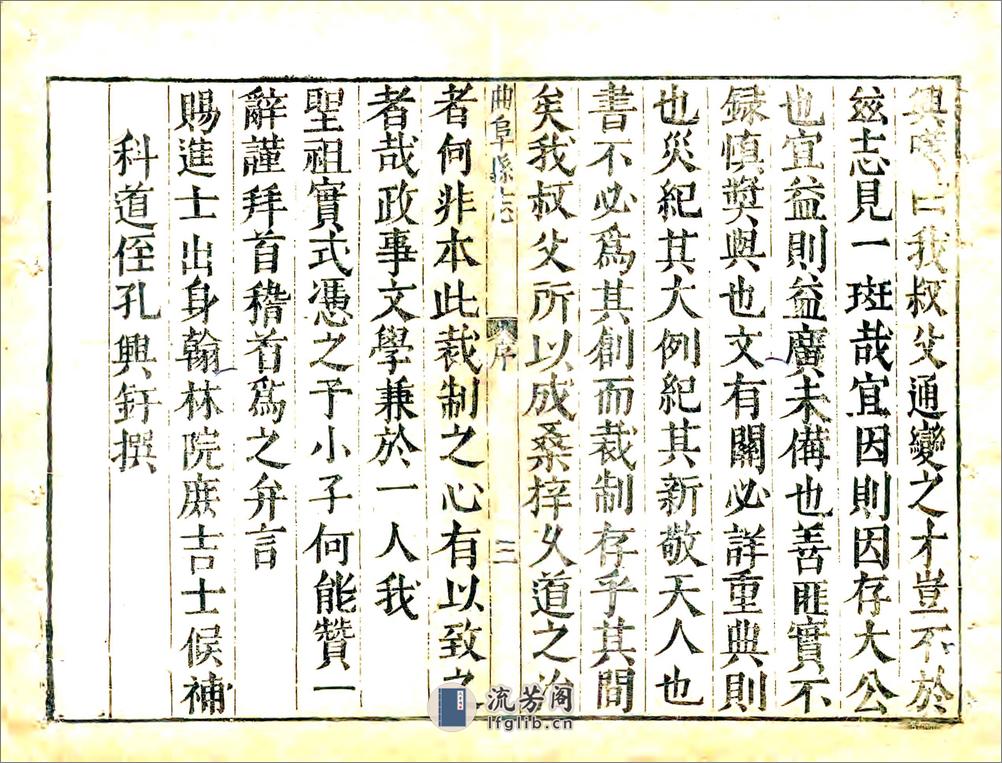 興 曰我叔父通變之才豈不於
玆志見一斑哉宜因則因存大公
也宜益則益廣未備也善匪實不
録慎奬與也文有關必詳重典則
也災紀其大例紀其新敬天人也
書不必爲其創而裁制存乎其間
矣我叔父所以成桑梓久道之治
曲阜縣志
序
三
者何非本此裁制之心有以致之
者哉政事文學兼於一人我
聖祖實式憑之予小子何能贊一
辭謹拜首稽首爲之弁言
賜進士出身翰林院庶吉士候補
科道侄孔興釬撰
流芳阁
lfglib.cn